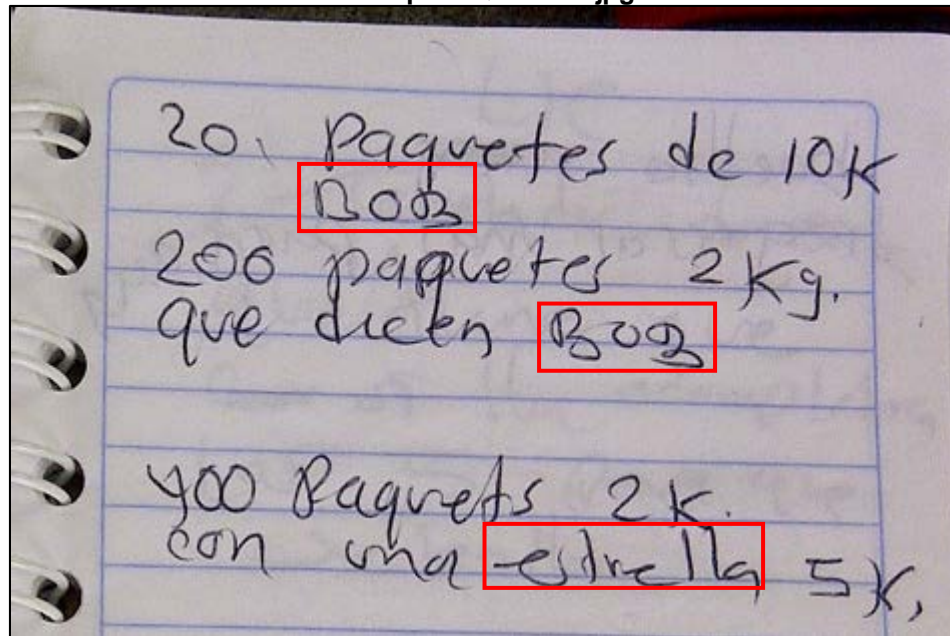 20. Paquetes de 10K
BOB
200 paquetes 2Kg.
que dicen BOB
400 Paquets 2K.
con una estrella 5K,